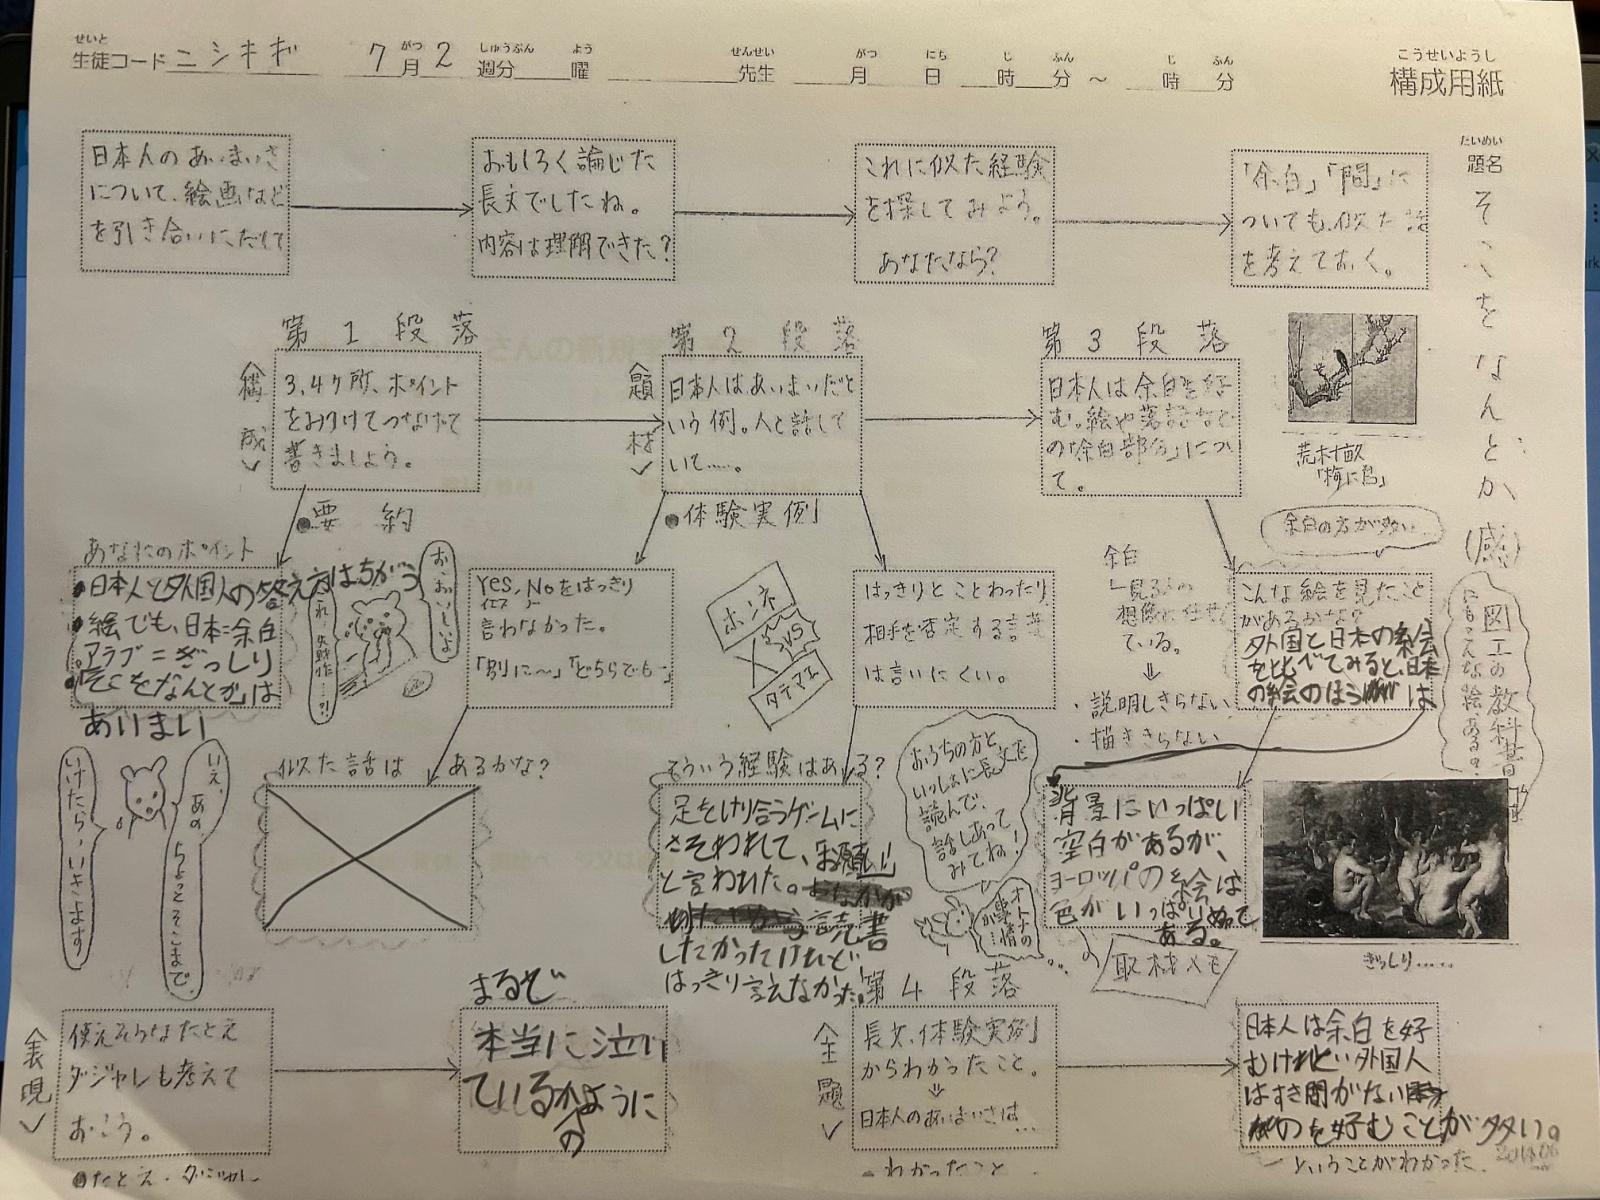 せいと がつ しゅうぶん よう せんせい がつ にち じ ふん じ ふん こうせいようし
生徒コード ニシキギ 7月2週分 曜 先生 月 日 時 分 ～ 時 分 構成用紙
たいめい
題名
そこをなんとか(感)
日本人のあいまいさ
について、絵画など
を引き合いにだして
おもしろく論じた
長文でしたね。
内容は理解できた?
これに似た経験
を探してみよう。
あなたなら?
「余白」「間」に
ついても、似た話
を考えておく。
第1段落
<構成>
3,4ヶ所、ポイント
をみつけてつなげて
書きましょう。
●要約
第2段落
<題材>
日本人はあいまいだと
いう例。人と話して
いて……。
●体験実例
第3段落
日本人は余白を好
む。絵や落語など
の「余白部分」につい
て。
荒木十畝
「梅に鳥」
余白の方が多い…
あなたのポイント
●日本人と外国人の答え方はちがう
●絵でも、日本=余白
アラブ=ぎっしり
●「そこをなんとか」は
あいまい
おっおいしいよ
Yes,Noをはっきり
イエス ノー
言わなかった。
「別に〜」「どちらでも…」
ホンネ
VS
タテマエ
はっきりとことわったり
相手を否定する言葉
は言いにくい。
余白
想像に任せ
ている。
⇓
・説明しきらない
・描ききらない
こんな絵を見たこと
があるかな?
外国と日本の絵
を比べてみると、日本
の絵のほうが は
図工の教科書
にもこんな絵ある?
いえ、あの ちょっとそこまで
いけたら、いきます
似た話は あるかな?
そういう経験はある?
足をけり合うゲームに
さそわれて、「お願い」
と言われた。
読書
したかったけれど
はっきり言えなかった。
おうちの方と
いっしょに長文を
読んで、
話しあって
みてね!
オトナの
事情
か…
背景にいっぱい
空白があるが、
ヨーロッパの絵は
色がいっぱいぬって
ある。
取材メモ
ぎっしり……
<表現>
使えそうなたとえ
ダジャレも考えて
おこう。
●たとえ・ダジャレ
まるで
本当に泣い
ているかのように
第4段落
<主題>
長文、体験実例
からわかったこと。
⇓
日本人のあいまいさは…
●わかったこと
日本人は余白を好
むけれど外国人
はすき間がない
のを好むことが多い。
ということがわかった。